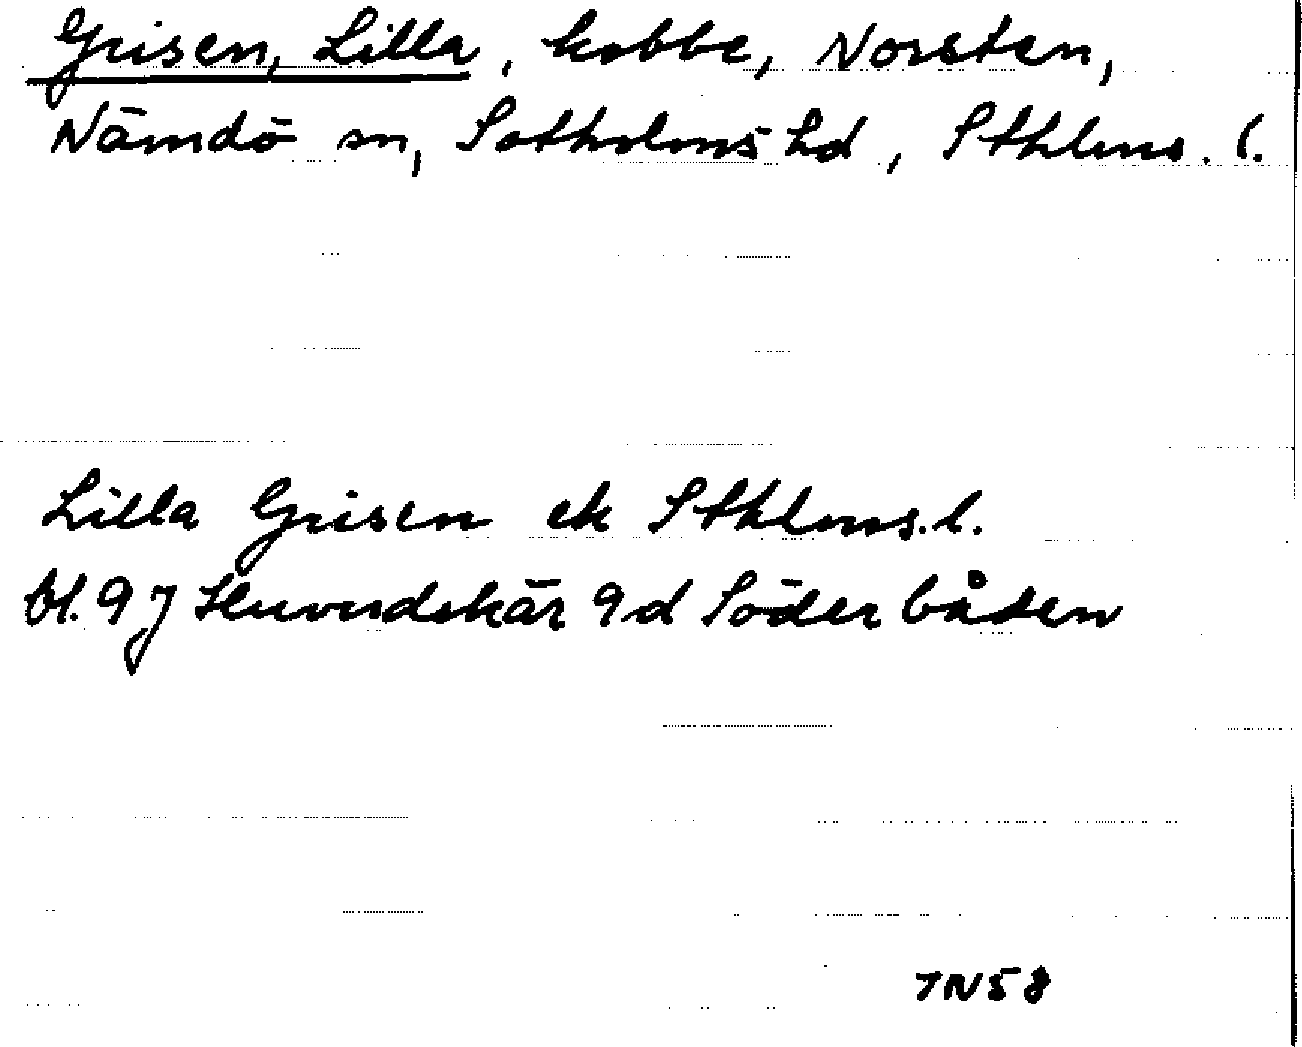 Grisen, Lilla, kobbe, Norsten,
Nämdö sn, Sotholms hd, Sthlms. l.
Lilla Grisen ek Sthlms. l.
bl. 9J Huvudskär 9d Söderbåden
TN58